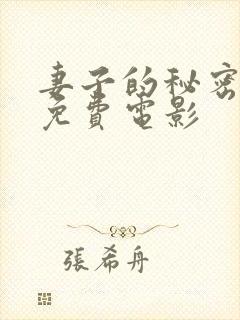 妻子的秘密
免費電影
張希舟